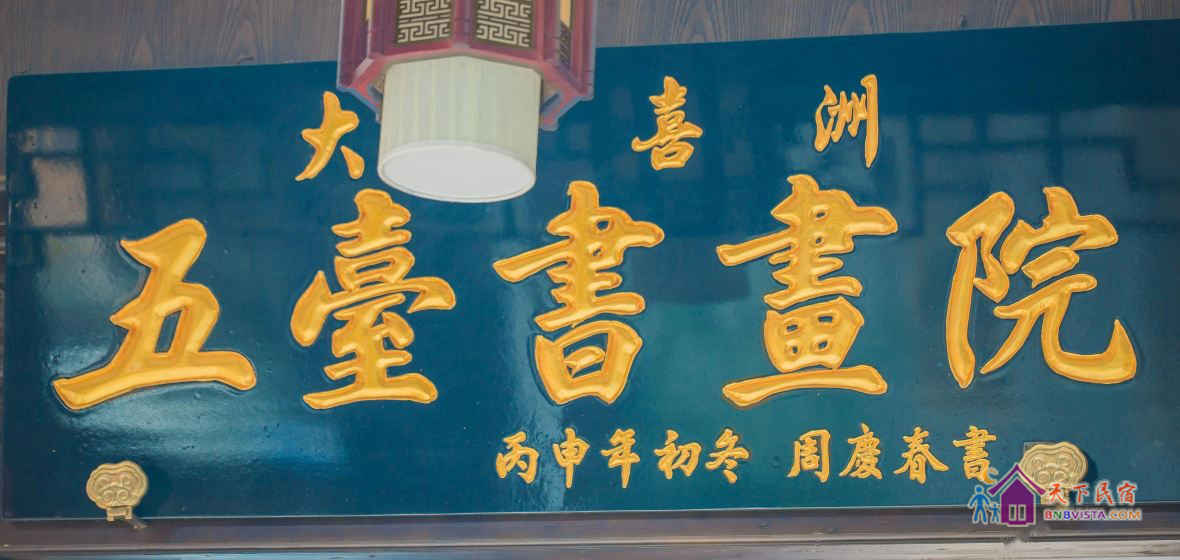 大 喜洲
五臺書畫院
丙申年初冬 周慶春書
天下民宿
BNBVISTA.COM